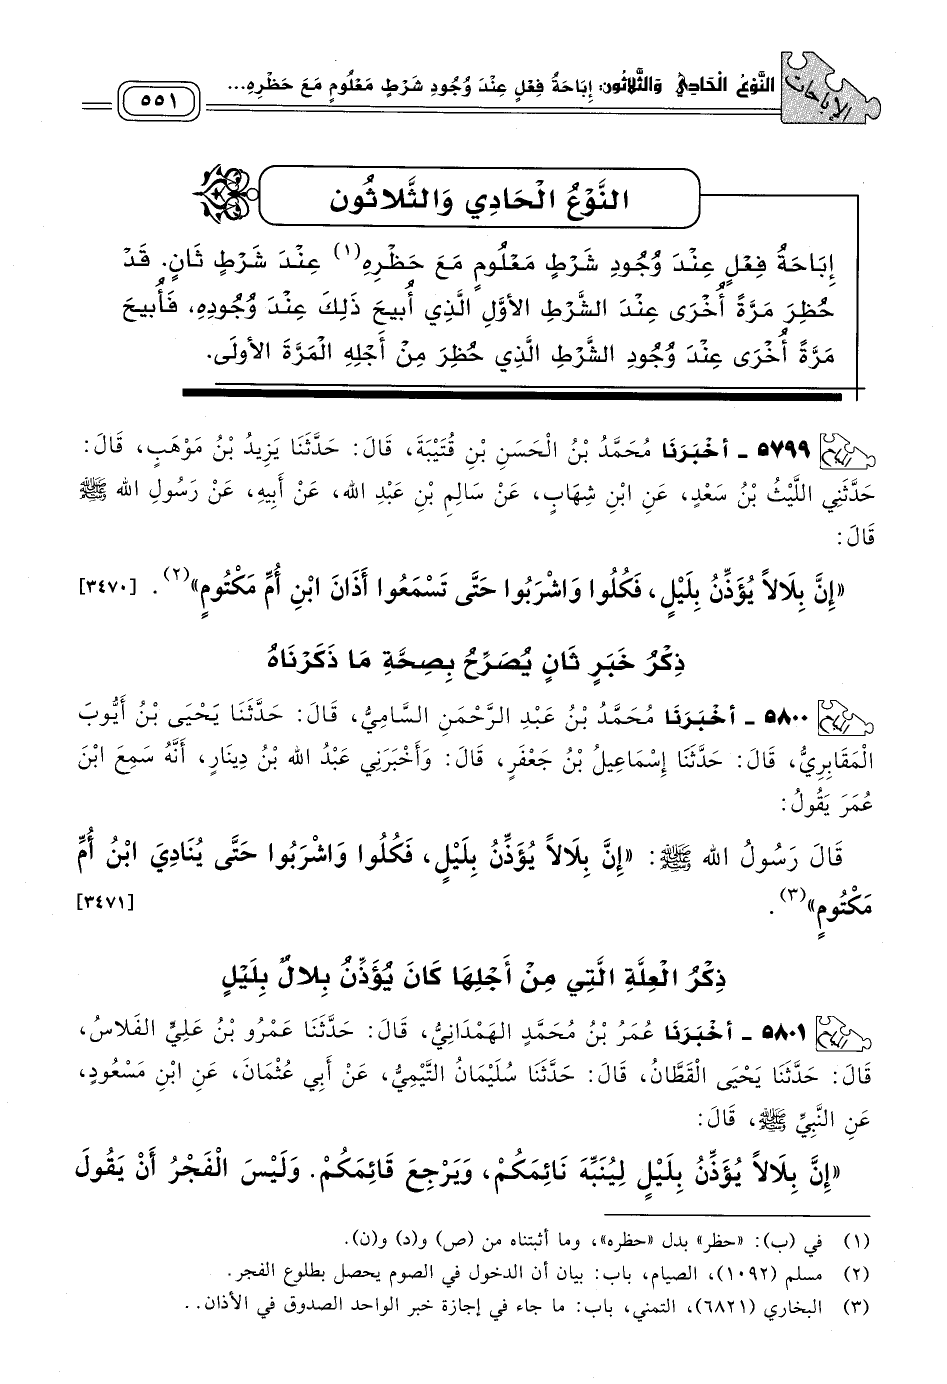 الإباحات
النَّوْعُ الْحَادِي وَالثَّلاثُون: إِبَاحَةُ فِعْلٍ عِنْدَ وُجُودِ شَرْطٍ مَعْلُومٍ مَعَ حَظْرِهِ...
٥٥١
النَّوْعُ الْحَادِي وَالثَّلاثُون
إِبَاحَةُ فِعْلٍ عِنْدَ وُجُودِ شَرْطٍ مَعْلُومٍ مَعَ حَظْرِهِ(١) عِنْدَ شَرْطٍ ثَانٍ. قَدْ
حُظِرَ مَرَّةً أُخْرَى عِنْدَ الشَّرْطِ الأَوَّلِ الَّذِي أُبِيحَ ذَلِكَ عِنْدَ وُجُودِهِ، فَأُبِيحَ
مَرَّةً أُخْرَى عِنْدَ وُجُودِ الشَّرْطِ الَّذِي حُظِرَ مِنْ أَجْلِهِ الْمَرَّةَ الأُولَى.
٥٧٩٩ ـ أخْبَرَنَا مُحَمَّدُ بْنُ الْحَسَنِ بْنِ قُتَيْبَةَ، قَالَ: حَدَّثَنَا يَزِيدُ بْنُ مَوْهَبٍ، قَالَ:
حَدَّثَنِي اللَّيْثُ بْنُ سَعْدٍ، عَنِ ابْنِ شِهَابٍ، عَنْ سَالِمِ بْنِ عَبْدِ الله، عَنْ أَبِيهِ، عَنْ رَسُولِ الله ﷺ
قَالَ:
«إِنَّ بِلَالاً يُؤَذِّنُ بِلَيْلٍ، فَكُلُوا وَاشْرَبُوا حَتَّى تَسْمَعُوا أَذَانَ ابْنِ أُمِّ مَكْتُومٍ»(٢). [٣٤٧٠]
ذِكْرُ خَبَرٍ ثَانٍ يُصَرِّحُ بِصِحَّةِ مَا ذَكَرْنَاهُ
٥٨٠٠ ـ أخْبَرَنَا مُحَمَّدُ بْنُ عَبْدِ الرَّحْمَنِ السَّامِيُّ، قَالَ: حَدَّثَنَا يَحْيَى بْنُ أَيُّوبَ
الْمَقَابِرِيُّ، قَالَ: حَدَّثَنَا إِسْمَاعِيلُ بْنُ جَعْفَرٍ، قَالَ: وَأَخْبَرَنِي عَبْدُ الله بْنُ دِينَارٍ، أَنَّهُ سَمِعَ ابْنَ
عُمَرَ يَقُولُ:
قَالَ رَسُولُ الله ﷺ: «إِنَّ بِلَالاً يُؤَذِّنُ بِلَيْلٍ، فَكُلُوا وَاشْرَبُوا حَتَّى يُنَادِيَ ابْنُ أُمِّ
مَكْتُومٍ»(٣). [٣٤٧١]
ذِكْرُ الْعِلَّةِ الَّتِي مِنْ أَجْلِهَا كَانَ يُؤَذِّنُ بِلالٌ بِلَيْلٍ
٥٨٠١ ـ أخْبَرَنَا عُمَرُ بْنُ مُحَمَّدٍ الهَمْدَانِيُّ، قَالَ: حَدَّثَنَا عَمْرُو بْنُ عَلِيٍّ الفَلاسُ،
قَالَ: حَدَّثَنَا يَحْيَى الْقَطَّانُ، قَالَ: حَدَّثَنَا سُلَيْمَانُ التَّيْمِيُّ، عَنْ أَبِي عُثْمَانَ، عَنِ ابْنِ مَسْعُودٍ،
عَنِ النَّبِيِّ ﷺ، قَالَ:
«إِنَّ بِلَالاً يُؤَذِّنُ بِلَيْلٍ لِيُنَبِّهَ نَائِمَكُمْ، وَيَرْجِعَ قَائِمَكُمْ. وَلَيْسَ الْفَجْرُ أَنْ يَقُولَ
(١) في (ب): «حظر» بدل «حظره»، وما أثبتناه من (ص) و(د) و(ن).
(٢) مسلم (١٠٩٢)، الصيام، باب: بيان أن الدخول في الصوم يحصل بطلوع الفجر.
(٣) البخاري (٦٨٢١)، التمني، باب: ما جاء في إجازة خبر الواحد الصدوق في الأذان..